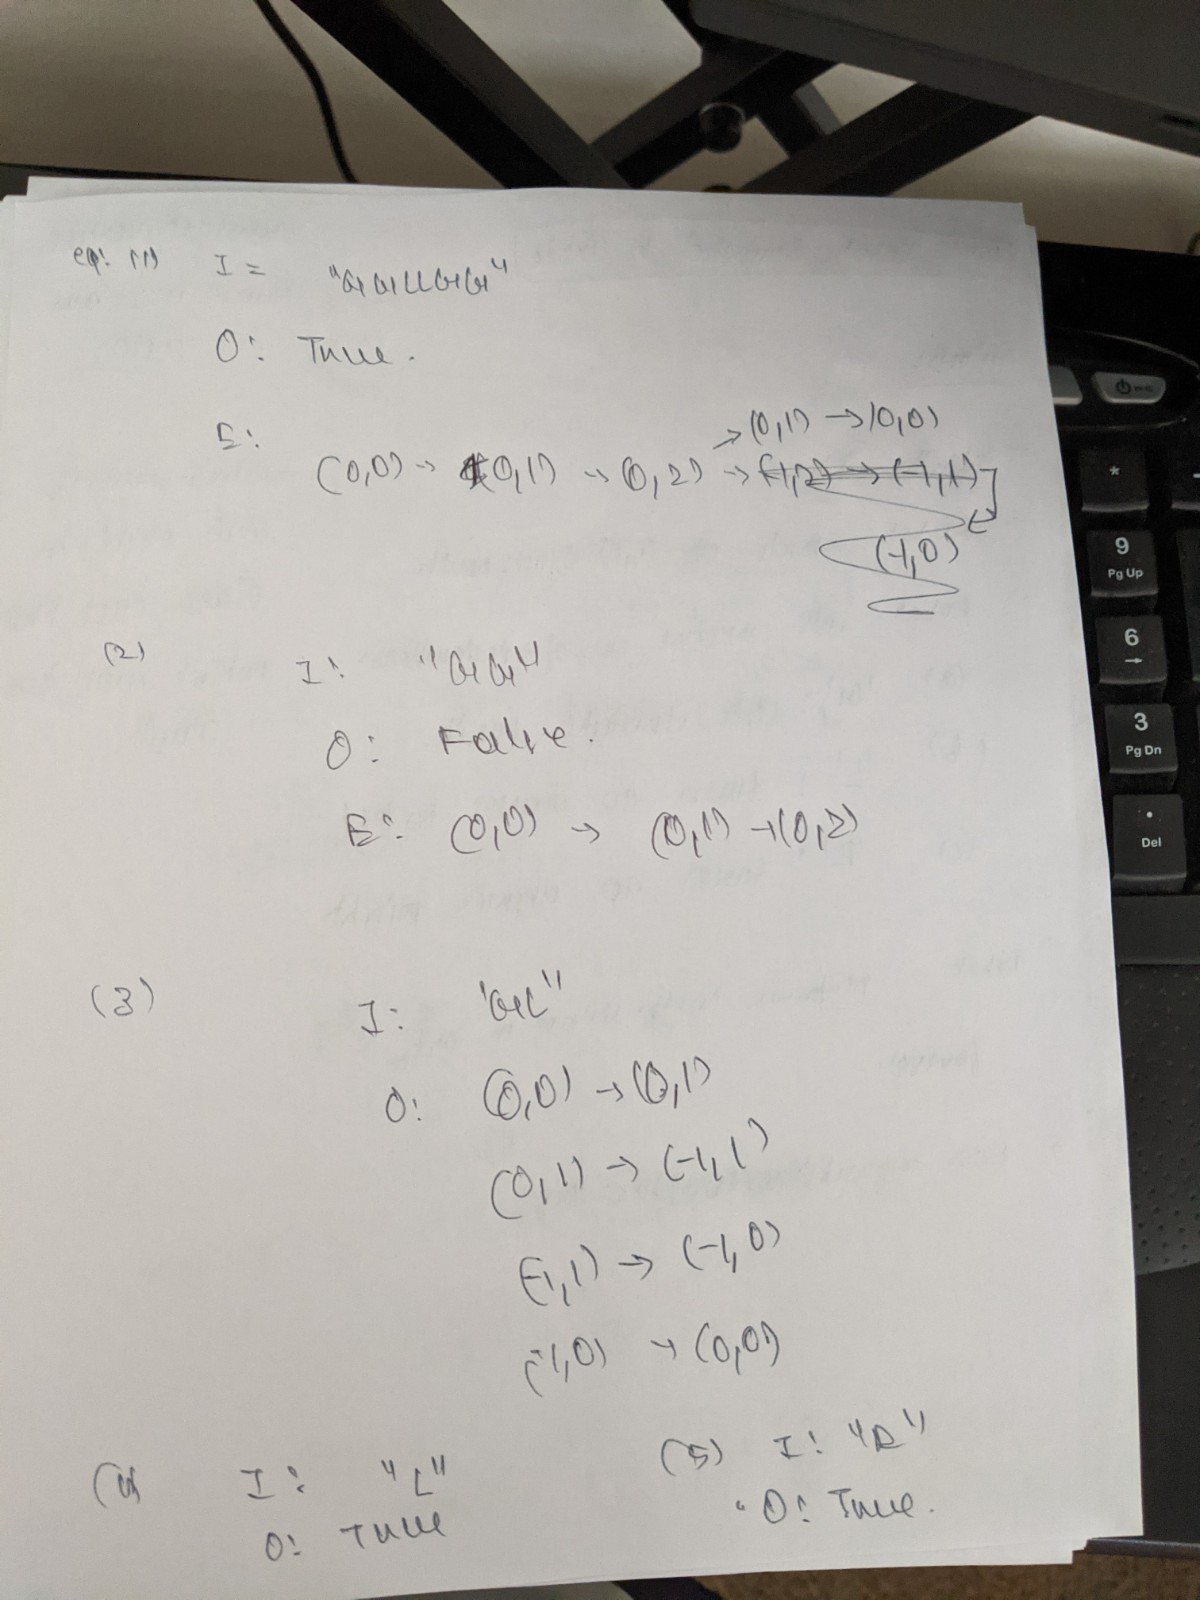 eg: (1) I = "GGLLGG"
O: True.
E: (0,0) → (0,1) → (0,2) → (-1,2) → (-1,1)
→ (0,1) → (0,0)
(-1,0)
(2) I: "GG"
O: False.
E: (0,0) → (0,1) → (0,2)
(3) I: "GL"
O: (0,0) → (0,1)
(0,1) → (-1,1)
(-1,1) → (-1,0)
(-1,0) → (0,0)
(4) I: "L"
O: True
(5) I: "R"
O: True.
*
9
Pg Up
6
→
3
Pg Dn
.
Del